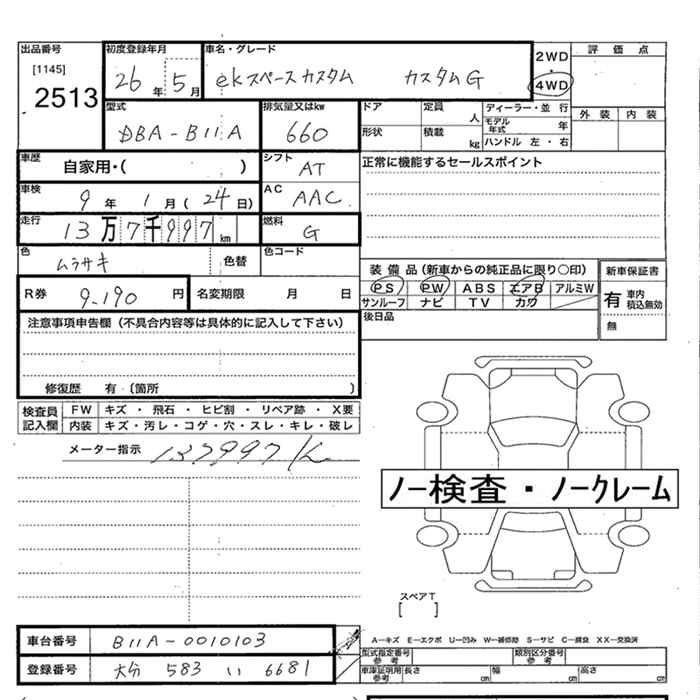 出品番号 初度登録年月 車名・グレード 2WD 評価点
[1145] 26年5月 ekスペースカスタム カスタムG 4WD
2513 外装 内装
型式 排気量又はkw ドア 定員 人 ディーラー・並行
DBA-B11A 660 形状 積載 kg モデル年式 年
ハンドル 左・右
車歴 自家用・( ) シフト AT 正常に機能するセールスポイント
車検 9年1月(24日) AC AAC
走行 13万7千997km 燃料 G
色 ムラサキ 色替 色コード
装備品(新車からの純正品に限り○印) 新車保証書
R券 9,190円 名変期限 月 日 PS PW ABS エアB アルミW 有 車内積込無効
サンルーフ ナビ TV カワ 無
注意事項申告欄(不具合内容等は具体的に記入して下さい) 後日品
修復歴 有(箇所 )
検査員記入欄 FW キズ・飛石・ヒビ割・リペア跡・X要
内装 キズ・汚レ・コゲ・穴・スレ・キレ・破レ
メーター指示 137997K
ノー検査・ノークレーム
スペアT
[ ]
A-キズ E-エクボ U-凹み W-補修跡 S-サビ C-腐食 XX-交換済
車台番号 B11A-0010103 型式指定番号参考 類別区分番号参考
登録番号 大分 583 い 6681 車庫証明用参考 長さ cm 幅 cm 高さ cm